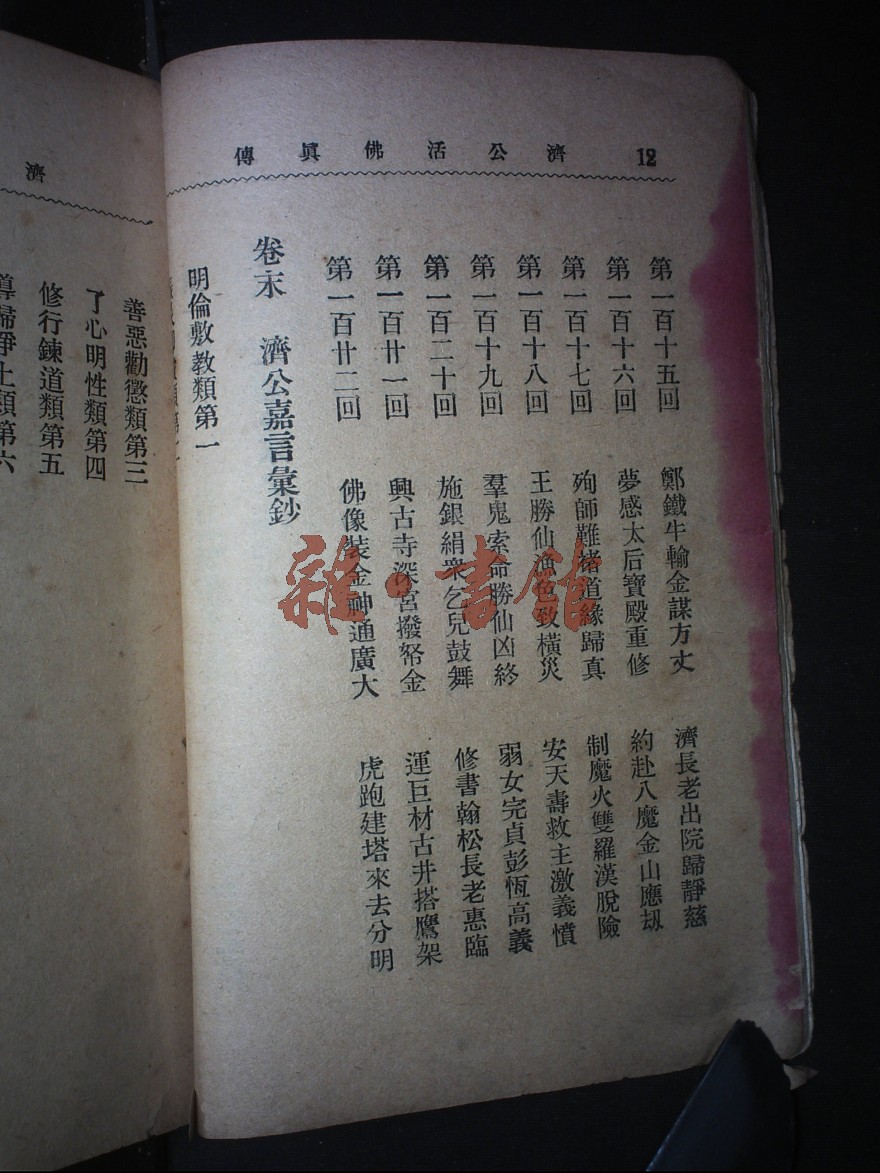 12 濟公活佛眞傳
第一百十五回 鄭鐵牛輸金謀方丈 濟長老出院歸靜慈
第一百十六回 夢感太后寶殿重修 約赴八魔金山應刼
第一百十七回 殉師難褚道緣歸真 制魔火雙羅漢脫險
第一百十八回 王勝仙漁色致橫災 安天壽救主激義憤
第一百十九回 羣鬼索命勝仙凶終 弱女完貞彭恆高義
第一百二十回 施銀絹衆乞兒鼓舞 修書翰松長老惠臨
第一百廿一回 興古寺深宮撥帑金 運巨材古井搭鷹架
第一百廿二回 佛像裝金神通廣大 虎跑建塔來去分明
卷末 濟公嘉言彙鈔
明倫敷教類第一
善惡勸懲類第三
了心明性類第四
修行鍊道類第五
導歸淨土類第六
濟
雜·書館